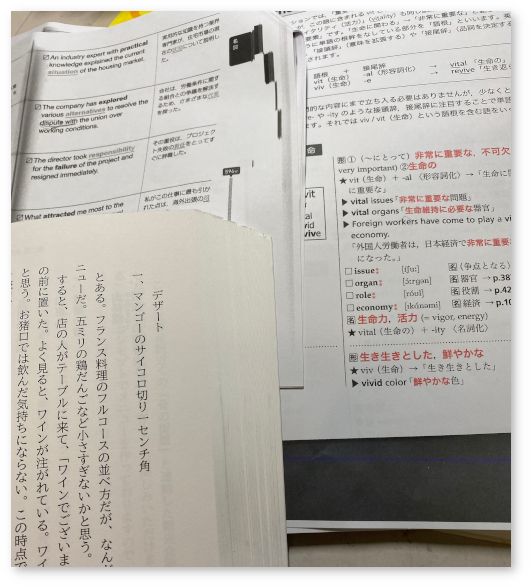 ☑ An industry expert with practical
knowledge explained the current
situation of the housing market.
実用的な知識を持つ業界
専門家が、住宅市場の現
☑ The company has explored
various alternatives to resolve the
dispute with the union over
working conditions.
会社は、労働条件に関す
る組合との争議を解決す
るため、さまざまな
を探った。
☑ The director took responsibility
for the failure of the project and
resigned immediately.
その重役は、プロジェク
ト失敗の責任をとってす
ぐに辞職した。
What attracted me most to the
私がこの仕事に最も引か
れた点は、海外出張の
名詞
語根 + 接尾辞
vit（生命） -al（形容詞化） → vital「生命の」
viv（生命） -e → revive「生き返
的な内容にまで立ち入る必要はありませんが、少なくと
e- や -ity のような接頭辞、接尾辞に注目することで単語
ます。それでは viv / vit（生命）という語根を含む語をい
形 ①（〜にとって）非常に重要な，不可欠
very important) ②生命の
★ vit（生命）+ -al（形容詞化）→「生命に
に重要な」
▶ vital issues「非常に重要な問題」
▶ vital organs「生命維持に必要な器官」
▶ Foreign workers have come to play a vi
economy.
「外国人労働者は、日本経済で非常に重要
になった。」
□ issue: [íʃuː] 名（争点となる）
□ organ: [ɔ́ːrgən] 名 器官 → p.38
□ role: [róul] 名 役割 → p.42
□ economy: [ikɑ́nəmi] 名 経済 → p.10
名 生命力，活力（= vigor, energy）
★ vital（生命の）+ -ity（名詞化）
形 生き生きとした，鮮やかな
★ viv（生命）→「生き生きとした」
▶ vivid color「鮮やかな色」
デザート
一、マンゴーのサイコロ切り一センチ角
とある。フランス料理のフルコースの並べ方だが、なんと
ニューだ。五ミリの鶏だんごなど小さすぎないかと思う。
すると、店の人がテーブルに来て、「ワインでございま
の前に置いた。よく見ると、ワインが注がれている。ワイ
と思う。お猪口では飲んだ気持ちにならない。この時点で